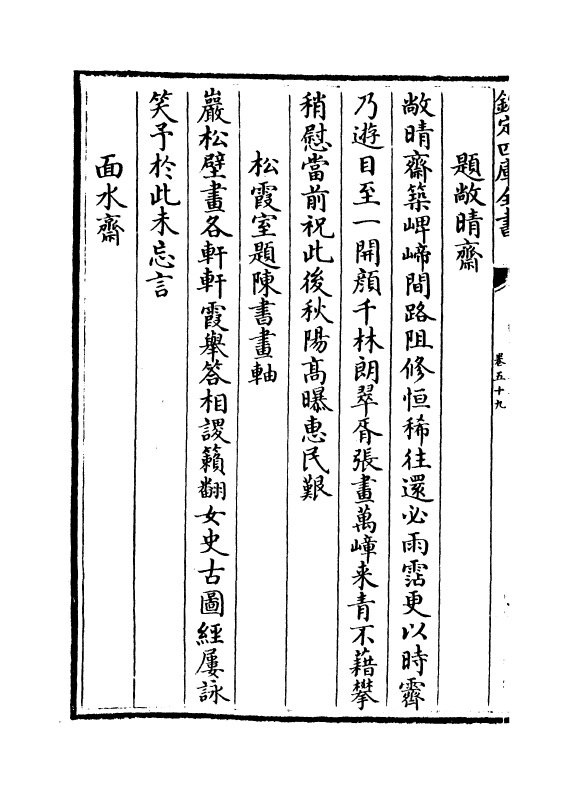 欽定四庫全書
卷五十九
題敞晴齋
敞晴齋築崥崹間路阻修恒稀往還必雨霑更以時霽
乃遊目至一開顔千林朗翠胥張畫萬嶂来青不藉攀
稍慰當前祝此後秋陽髙曝惠民艱
松霞室題陳書畫軸
巖松壁畫各軒軒霞舉答相謖籟翻女史古圖經屢詠
笑予於此未忘言
面水齋